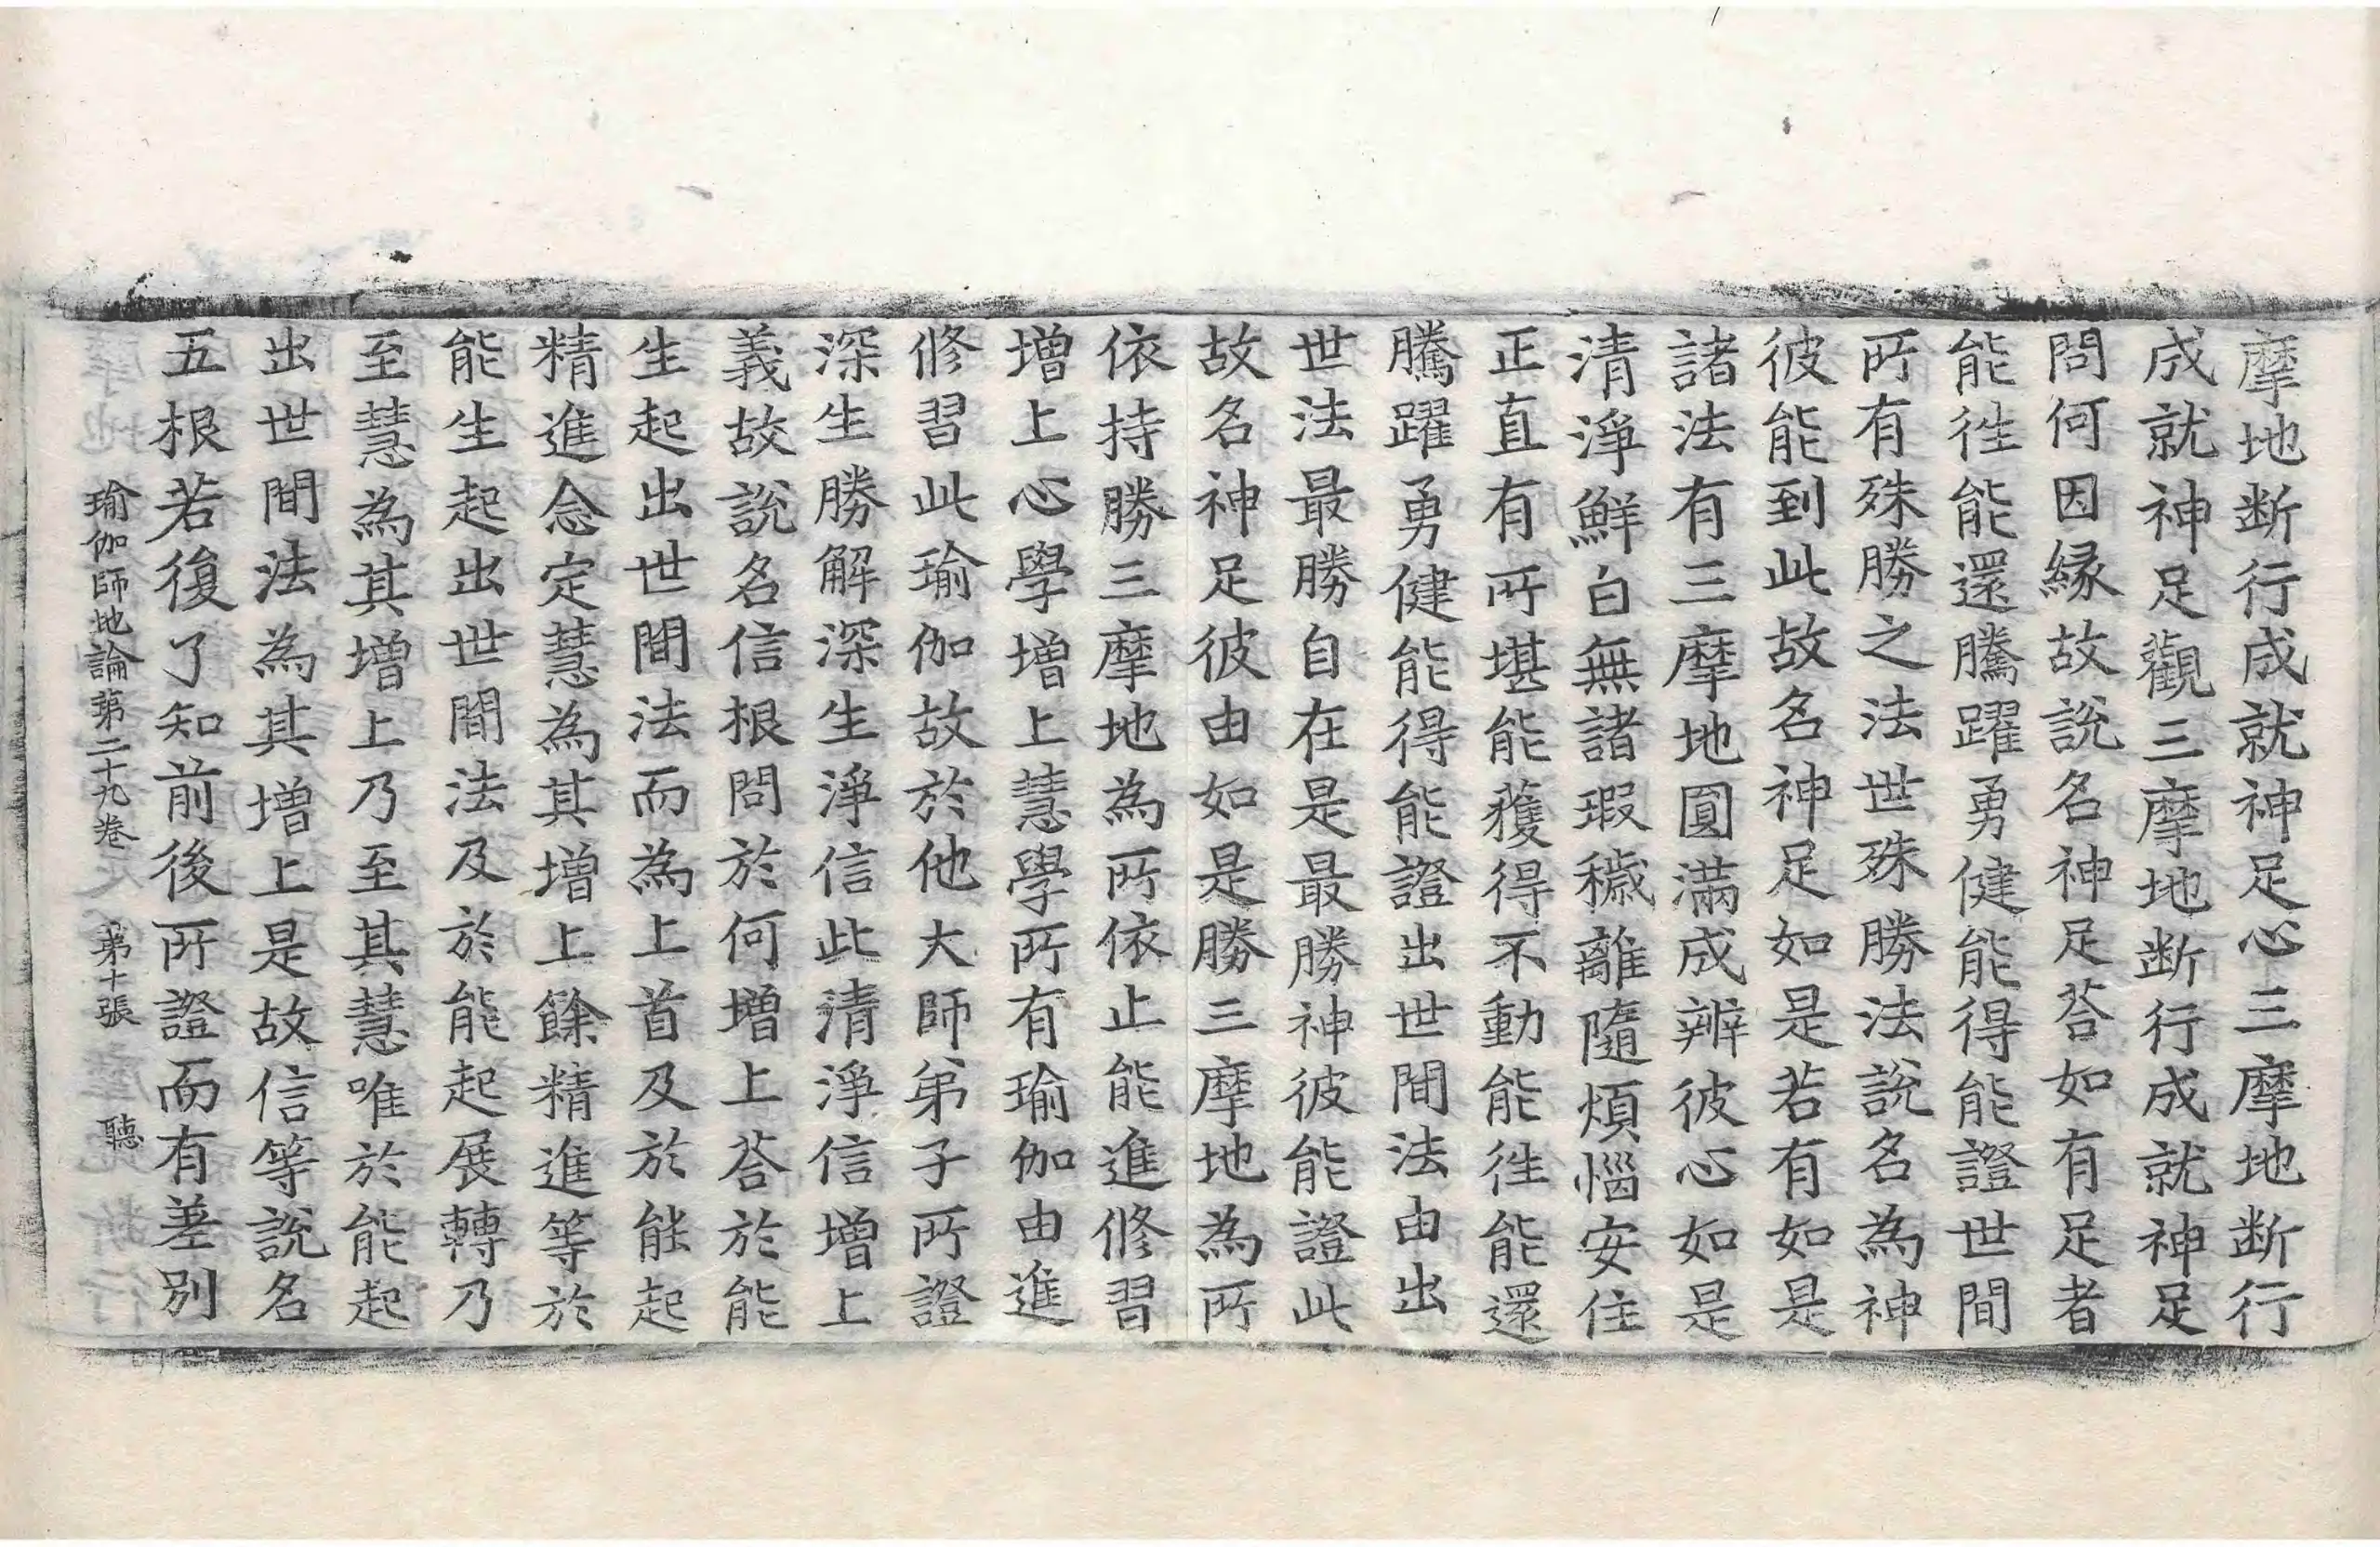 摩地断行成就神足心三摩地断行
成就神足觀三摩地断行成就神足
問何因緣故說名神足荅如有足者
能徃能還騰躍勇健能得能證世間
所有殊勝之法世殊勝法說名為神
彼能到此故名神足如是若有如是
諸法有三摩地圓滿成辨彼心如是
清淨鮮白無諸瑕穢離隨煩惱安住
正直有所堪能獲得不動能徃能還
騰躍勇健能得能證出世間法由出
世法最勝自在是最勝神彼能證此
故名神足彼由如是勝三摩地為所
依持勝三摩地為所依止能進修習
增上心學增上慧學所有瑜伽由進
修習此瑜伽故於他大師弟子所證
深生勝解深生淨信此清淨信增上
義故說名信根問於何增上荅於能
生起出世間法而為上首及於能起
精進念定慧為其增上餘精進等於
能生起出世間法及於能起展轉乃
至慧為其增上乃至其慧唯於能起
出世間法為其增上是故信等說名
五根若復了知前後所證而有差別
瑜伽師地論第二十九卷 第十張 聽